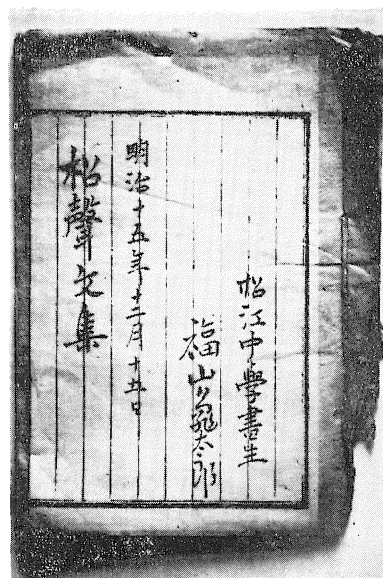 松江中學書生
福山龜太郎
明治十五年十二月十五日
松聲文集